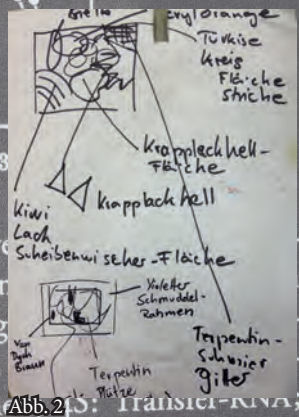 Türkise
Kreis
Fläiche
Striche
Krapplackhell-
Fläiche
Krapplack hell
Kiwi
Lach
Scheibenwischer-Fläiche
Violetter
Schmuddel-
Rahmen
Van
Dyck
Braun
Terpentin
Pfütze
Terpentin-
Schmier
Gitter
Abb. 2
Transfer-RNA